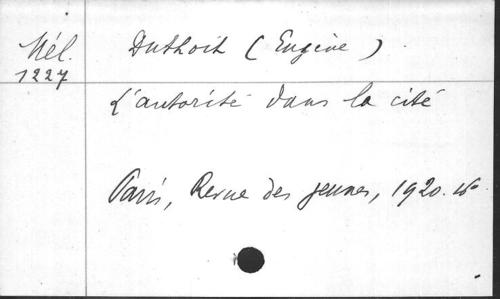 Mél.
1227
Duthoit (Eugène)
L'autorité dans la cité
Paris, Revue des jeunes, 1920. in